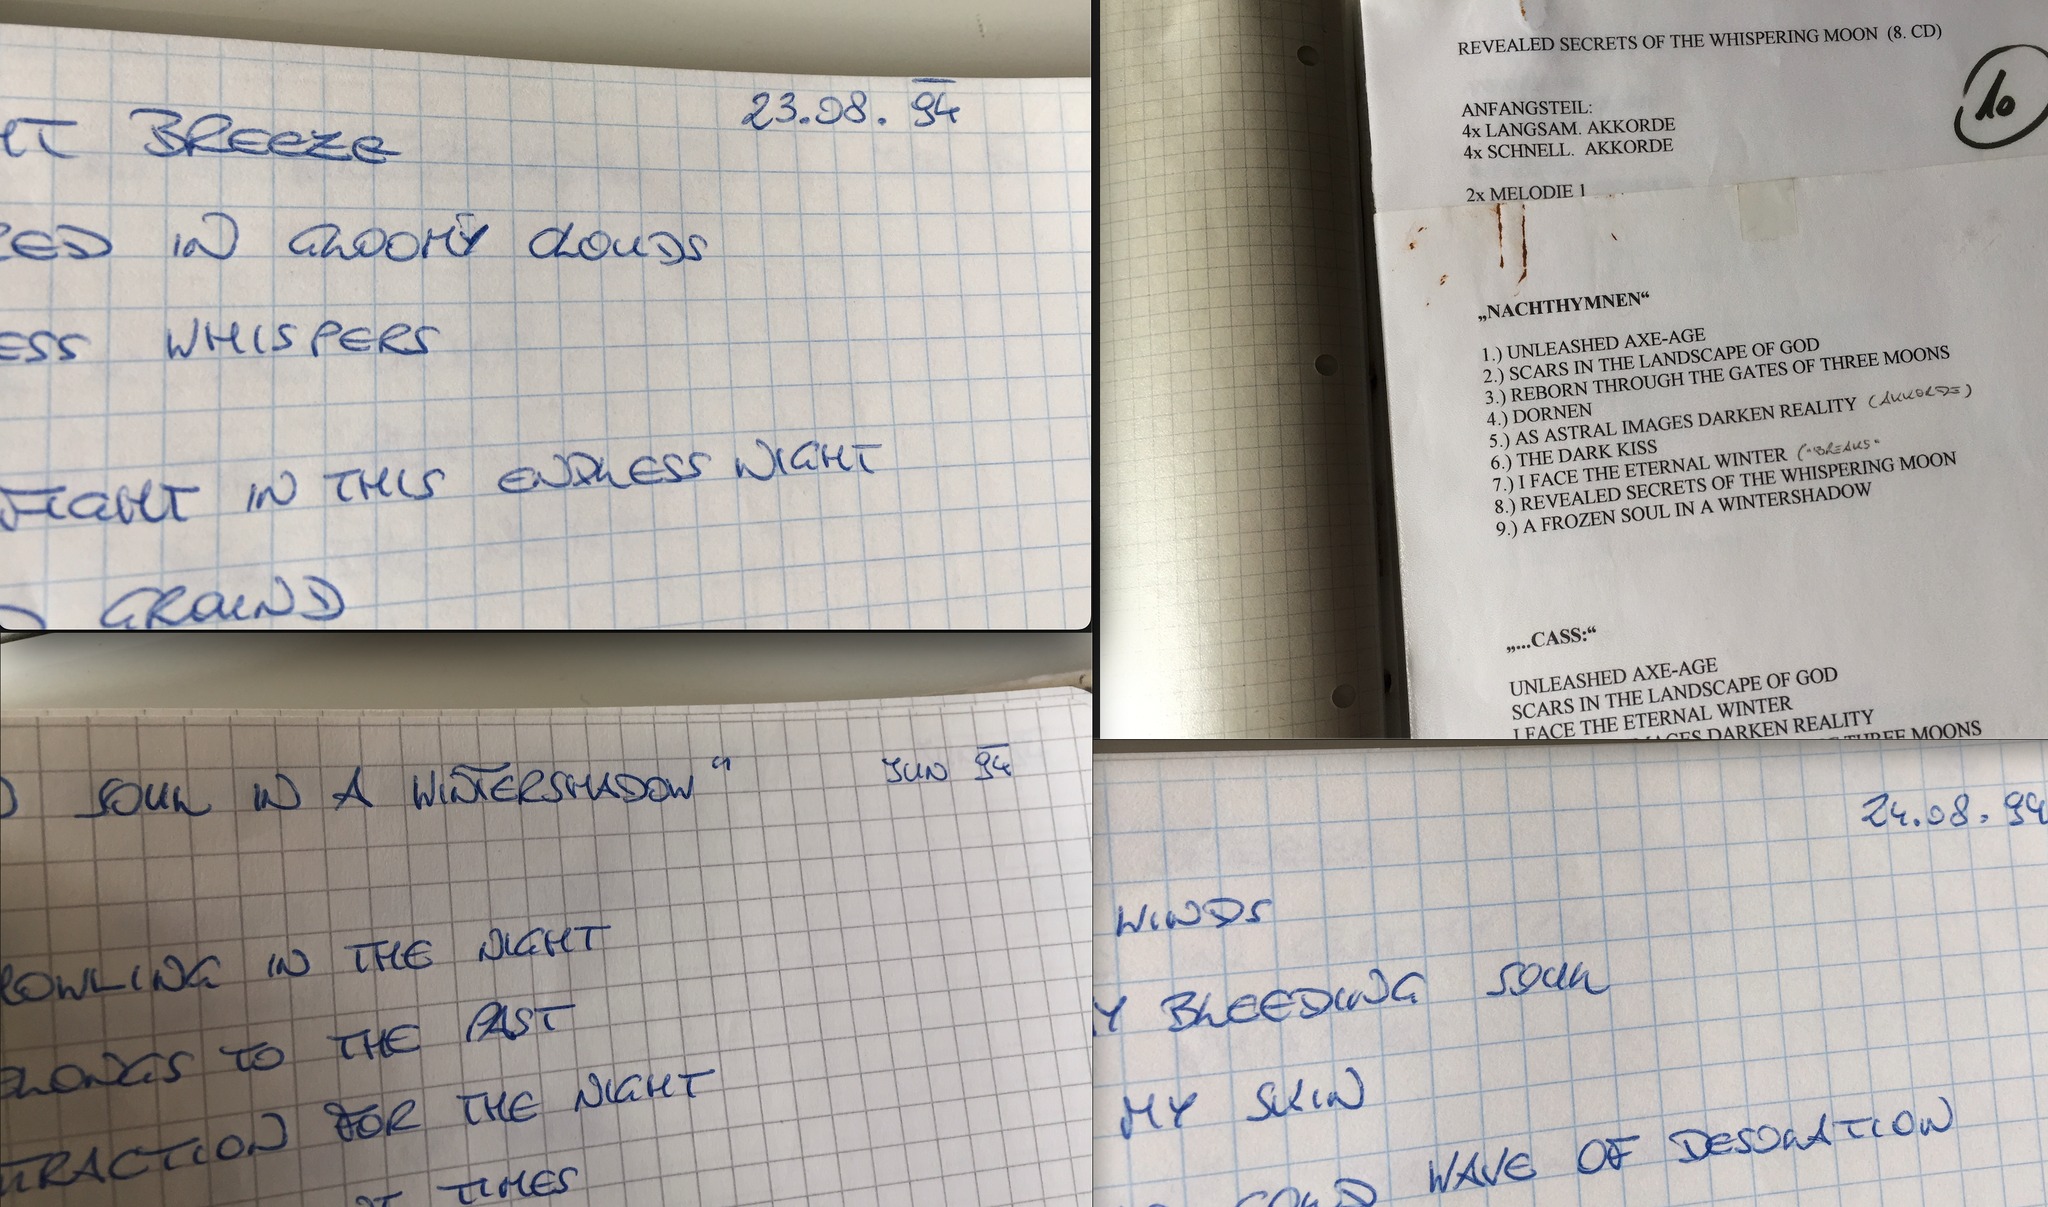 BREEZE 23.08.94
IN GLOOMY CLOUDS
WHISPERS
FIGHT IN THIS ENDLESS NIGHT
GROUND
REVEALED SECRETS OF THE WHISPERING MOON (8. CD)
10
ANFANGSTEIL:
4x LANGSAM. AKKORDE
4x SCHNELL. AKKORDE
2x MELODIE 1
„NACHTHYMNEN“
1.) UNLEASHED AXE-AGE
2.) SCARS IN THE LANDSCAPE OF GOD
3.) REBORN THROUGH THE GATES OF THREE MOONS
4.) DORNEN
5.) AS ASTRAL IMAGES DARKEN REALITY (AKKORDE)
6.) THE DARK KISS
7.) I FACE THE ETERNAL WINTER ("BREAKS"
8.) REVEALED SECRETS OF THE WHISPERING MOON
9.) A FROZEN SOUL IN A WINTERSHADOW
„...CASS:“
UNLEASHED AXE-AGE
SCARS IN THE LANDSCAPE OF GOD
I FACE THE ETERNAL WINTER
IMAGES DARKEN REALITY
THREE MOONS
SOUL IN A WINTERSHADOW" JUN 94
ROWLING IN THE NIGHT
ELONGS TO THE PAST
TRACTION FOR THE NIGHT
TIMES
24.08.94
WINDS
Y BLEEDING SOUL
MY SKIN
COLD WAVE OF DESOLATION